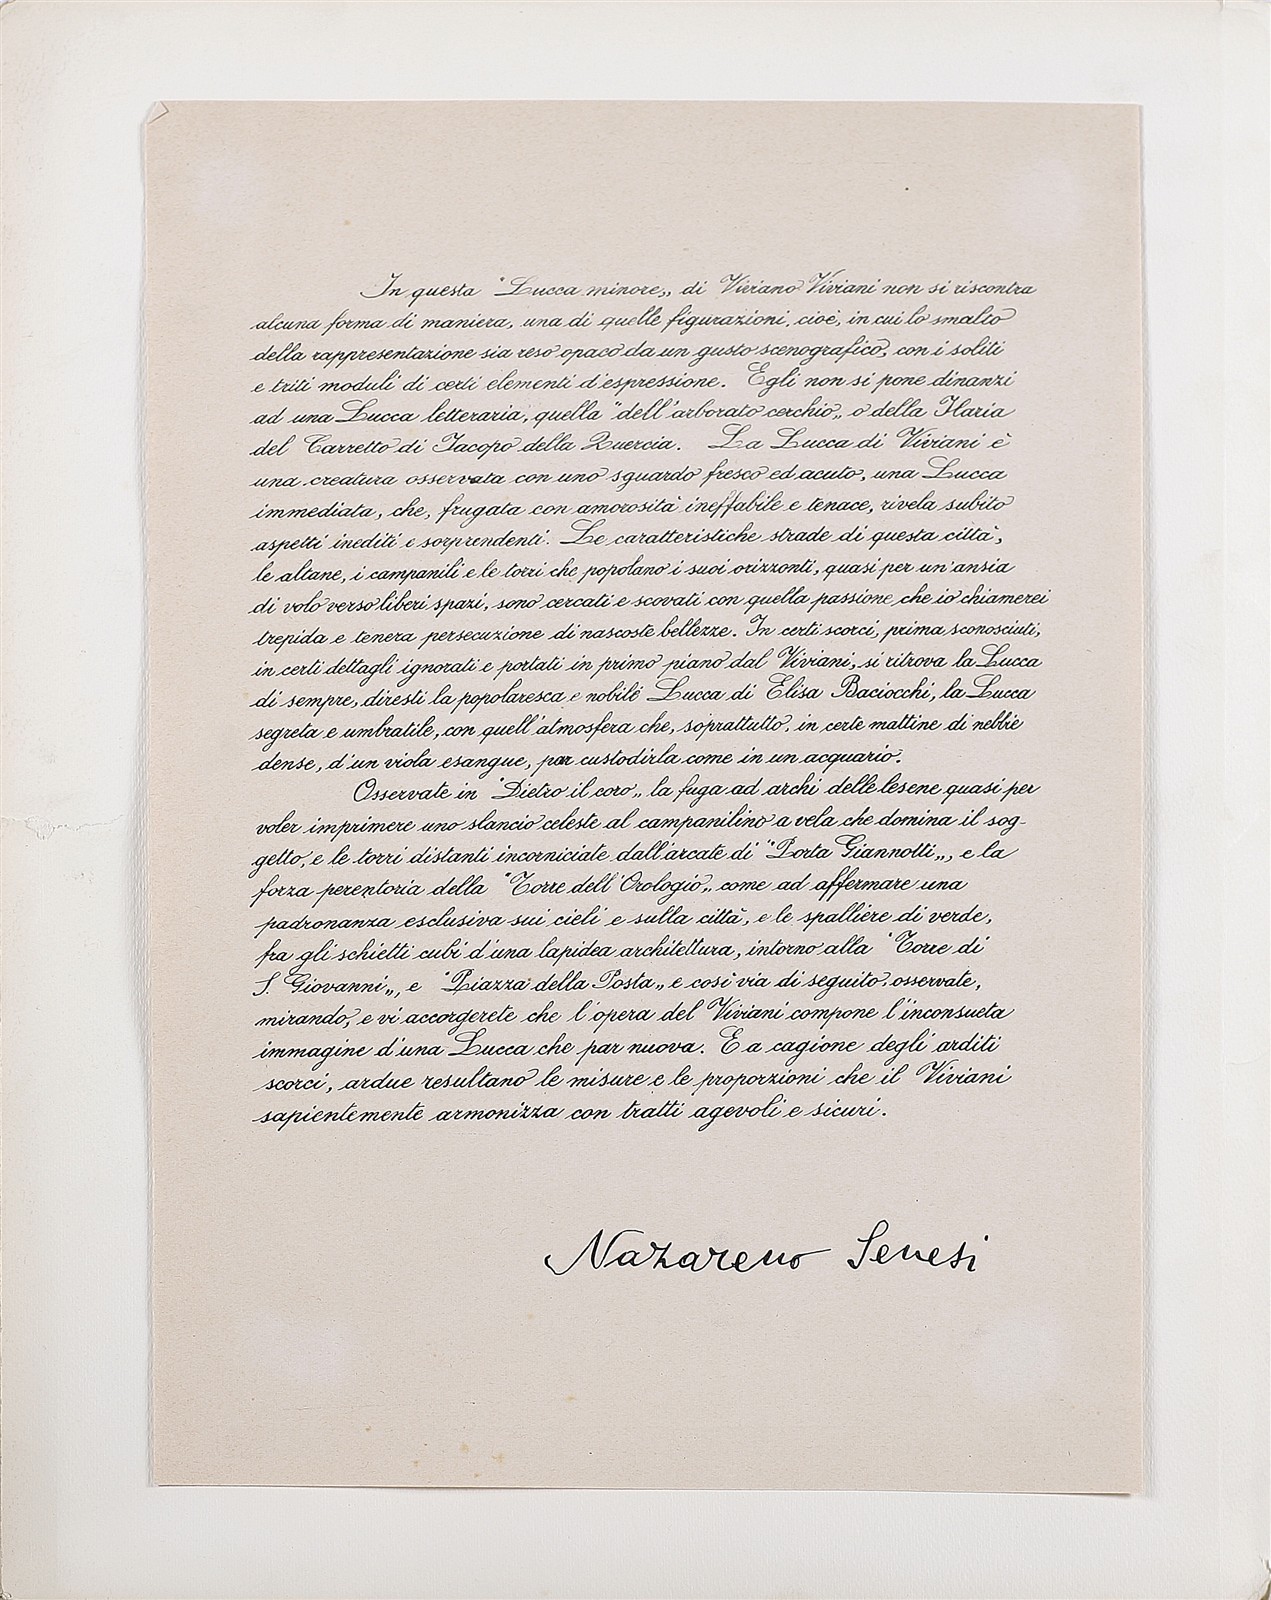 In questa "Lucca minore„ di Viviano Viviani non si riscontra
alcuna forma di maniera, una di quelle figurazioni, cioè, in cui lo smalto
della rappresentazione sia reso opaco da un gusto scenografico, con i soliti
e triti moduli di certi elementi d'espressione. Egli non si pone dinanzi
ad una Lucca letteraria, quella "dell'arborato cerchio„ o della Ilaria
del Carretto di Iacopo della Quercia. La Lucca di Viviani è
una creatura osservata con uno sguardo fresco ed acuto, una Lucca
immediata, che, frugata con amorosità ineffabile e tenace, rivela subito
aspetti inediti e sorprendenti. Le caratteristiche strade di questa città,
le altane, i campanili e le torri che popolano i suoi orizzonti, quasi per un'ansia
di volo verso liberi spazi, sono cercati e scovati con quella passione che io chiamerei
trepida e tenera persecuzione di nascoste bellezze. In certi scorci, prima sconosciuti,
in certi dettagli ignorati e portati in primo piano dal Viviani, si ritrova la Lucca
di sempre, diresti la popolaresca e nobile Lucca di Elisa Baciocchi, la Lucca
segreta e umbratile, con quell'atmosfera che, soprattutto, in certe mattine di nebbie
dense, d'un viola esangue, par custodirla come in un acquario.
Osservate in "Dietro il coro„ la fuga ad archi delle lesene quasi per
voler imprimere uno slancio celeste al campanilino a vela che domina il sog-
getto, e le torri distanti incorniciate dall'arcate di "Porta Giannotti„, e la
forza perentoria della "Torre dell'Orologio„ come ad affermare una
padronanza esclusiva sui cieli e sulla città, e le spalliere di verde,
fra gli schietti cubi d'una lapidea architettura, intorno alla "Torre di
S. Giovanni„, e "Piazza della Posta„ e così via di seguito, osservate,
mirando, e vi accorgerete che l'opera del Viviani compone l'inconsueta
immagine d'una Lucca che par nuova. E a cagione degli arditi
scorci, ardue resultano le misure e le proporzioni che il Viviani
sapientemente armonizza con tratti agevoli e sicuri.
Nazareno Senesi